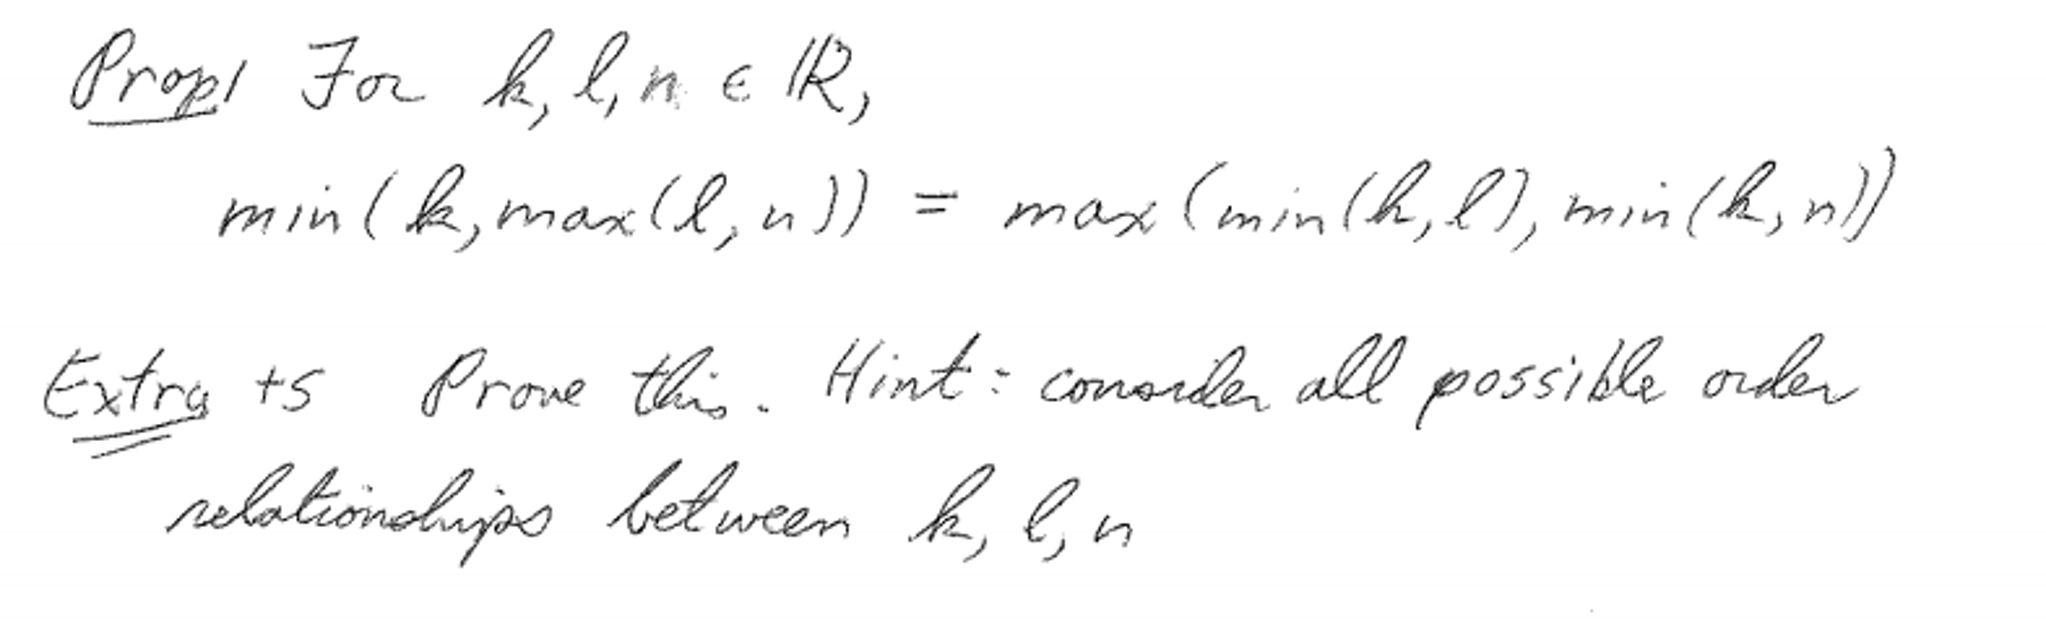 Prop/ For k, l, n ∈ ℝ,
min(k, max(l, n)) = max(min(k, l), min(k, n))
Extra +5 Prove this. Hint: consider all possible order
relationships between k, l, n